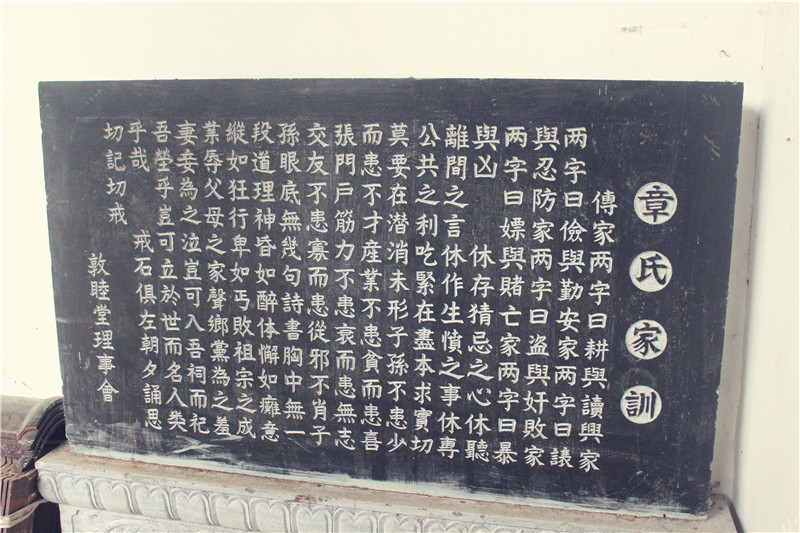 章氏家訓
傳家两字曰耕與讀興家
两字曰儉與勤安家两字曰讓
與忍防家两字曰盗與奸敗家
两字曰嫖與賭亡家两字曰暴
與凶 休存猜忌之心休聽
離間之言休作生憤之事休專
公共之利吃緊在盡本求實切
莫要在潜消未形子孫不患少
而患不才産業不患貧而患喜
張門戸筋力不患哀而患無志
交友不患寡而患從邪不肖子
孫眼底無幾句詩書胸中無一
段道理神昏如醉体懈如癱意
縱如狂行卑如丐敗祖宗之成
業辱父母之家聲鄉黨為之羞
妻妾為之泣豈可入吾祠而祀
吾塋乎豈可立於世而名人类
乎哉 戒石俱左朝夕誦思
切記切戒
敦睦堂理事會